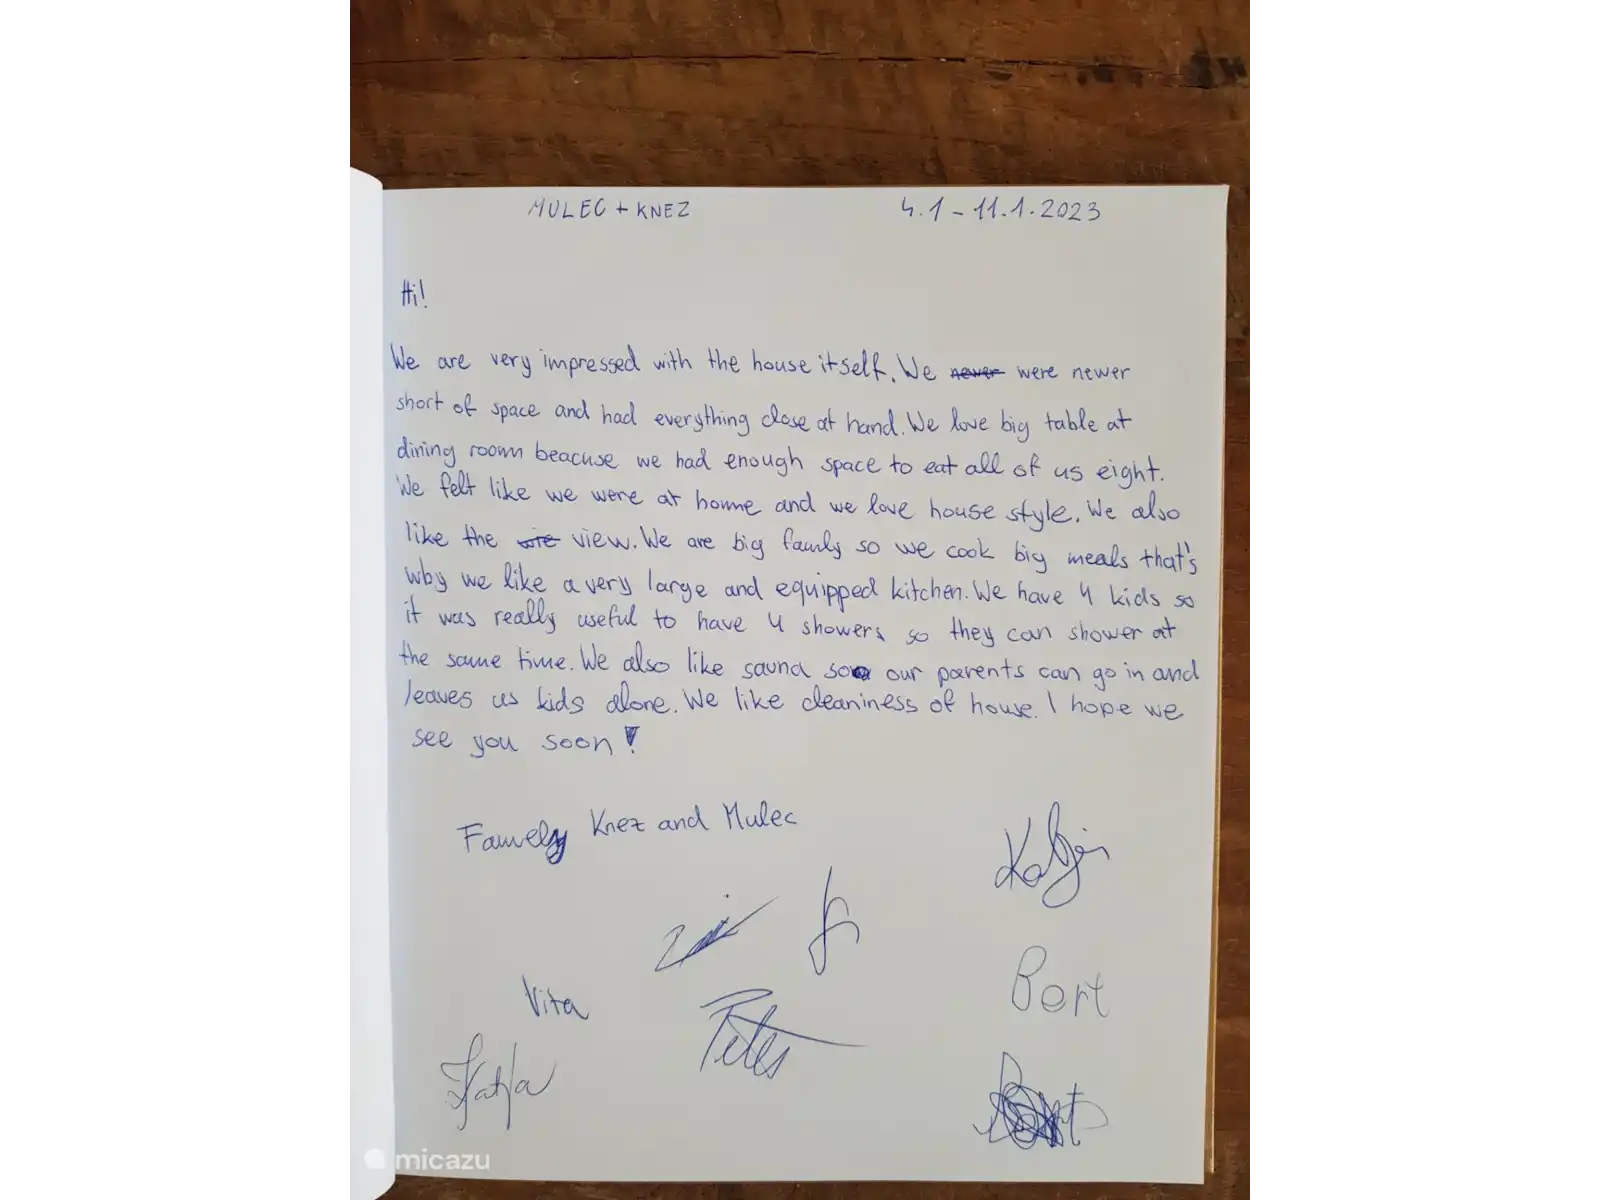 MULEC + KNEZ 4.1 - 11.1.2023
Hi!
We are very impressed with the house itself. We newer were newer
short of space and had everything close at hand. We love big table at
dining room beacuse we had enough space to eat all of us eight.
We felt like we were at home and we love house style. We also
like the vie view. We are big family so we cook big meals that's
why we like a very large and equipped kitchen. We have 4 kids so
it was really useful to have 4 showers so they can shower at
the same time. We also like sauna so our parents can go in and
leaves us kids alone. We like cleaniness of house. I hope we
see you soon!
Famely Knez and Mulec
Vita
Bert
micazu